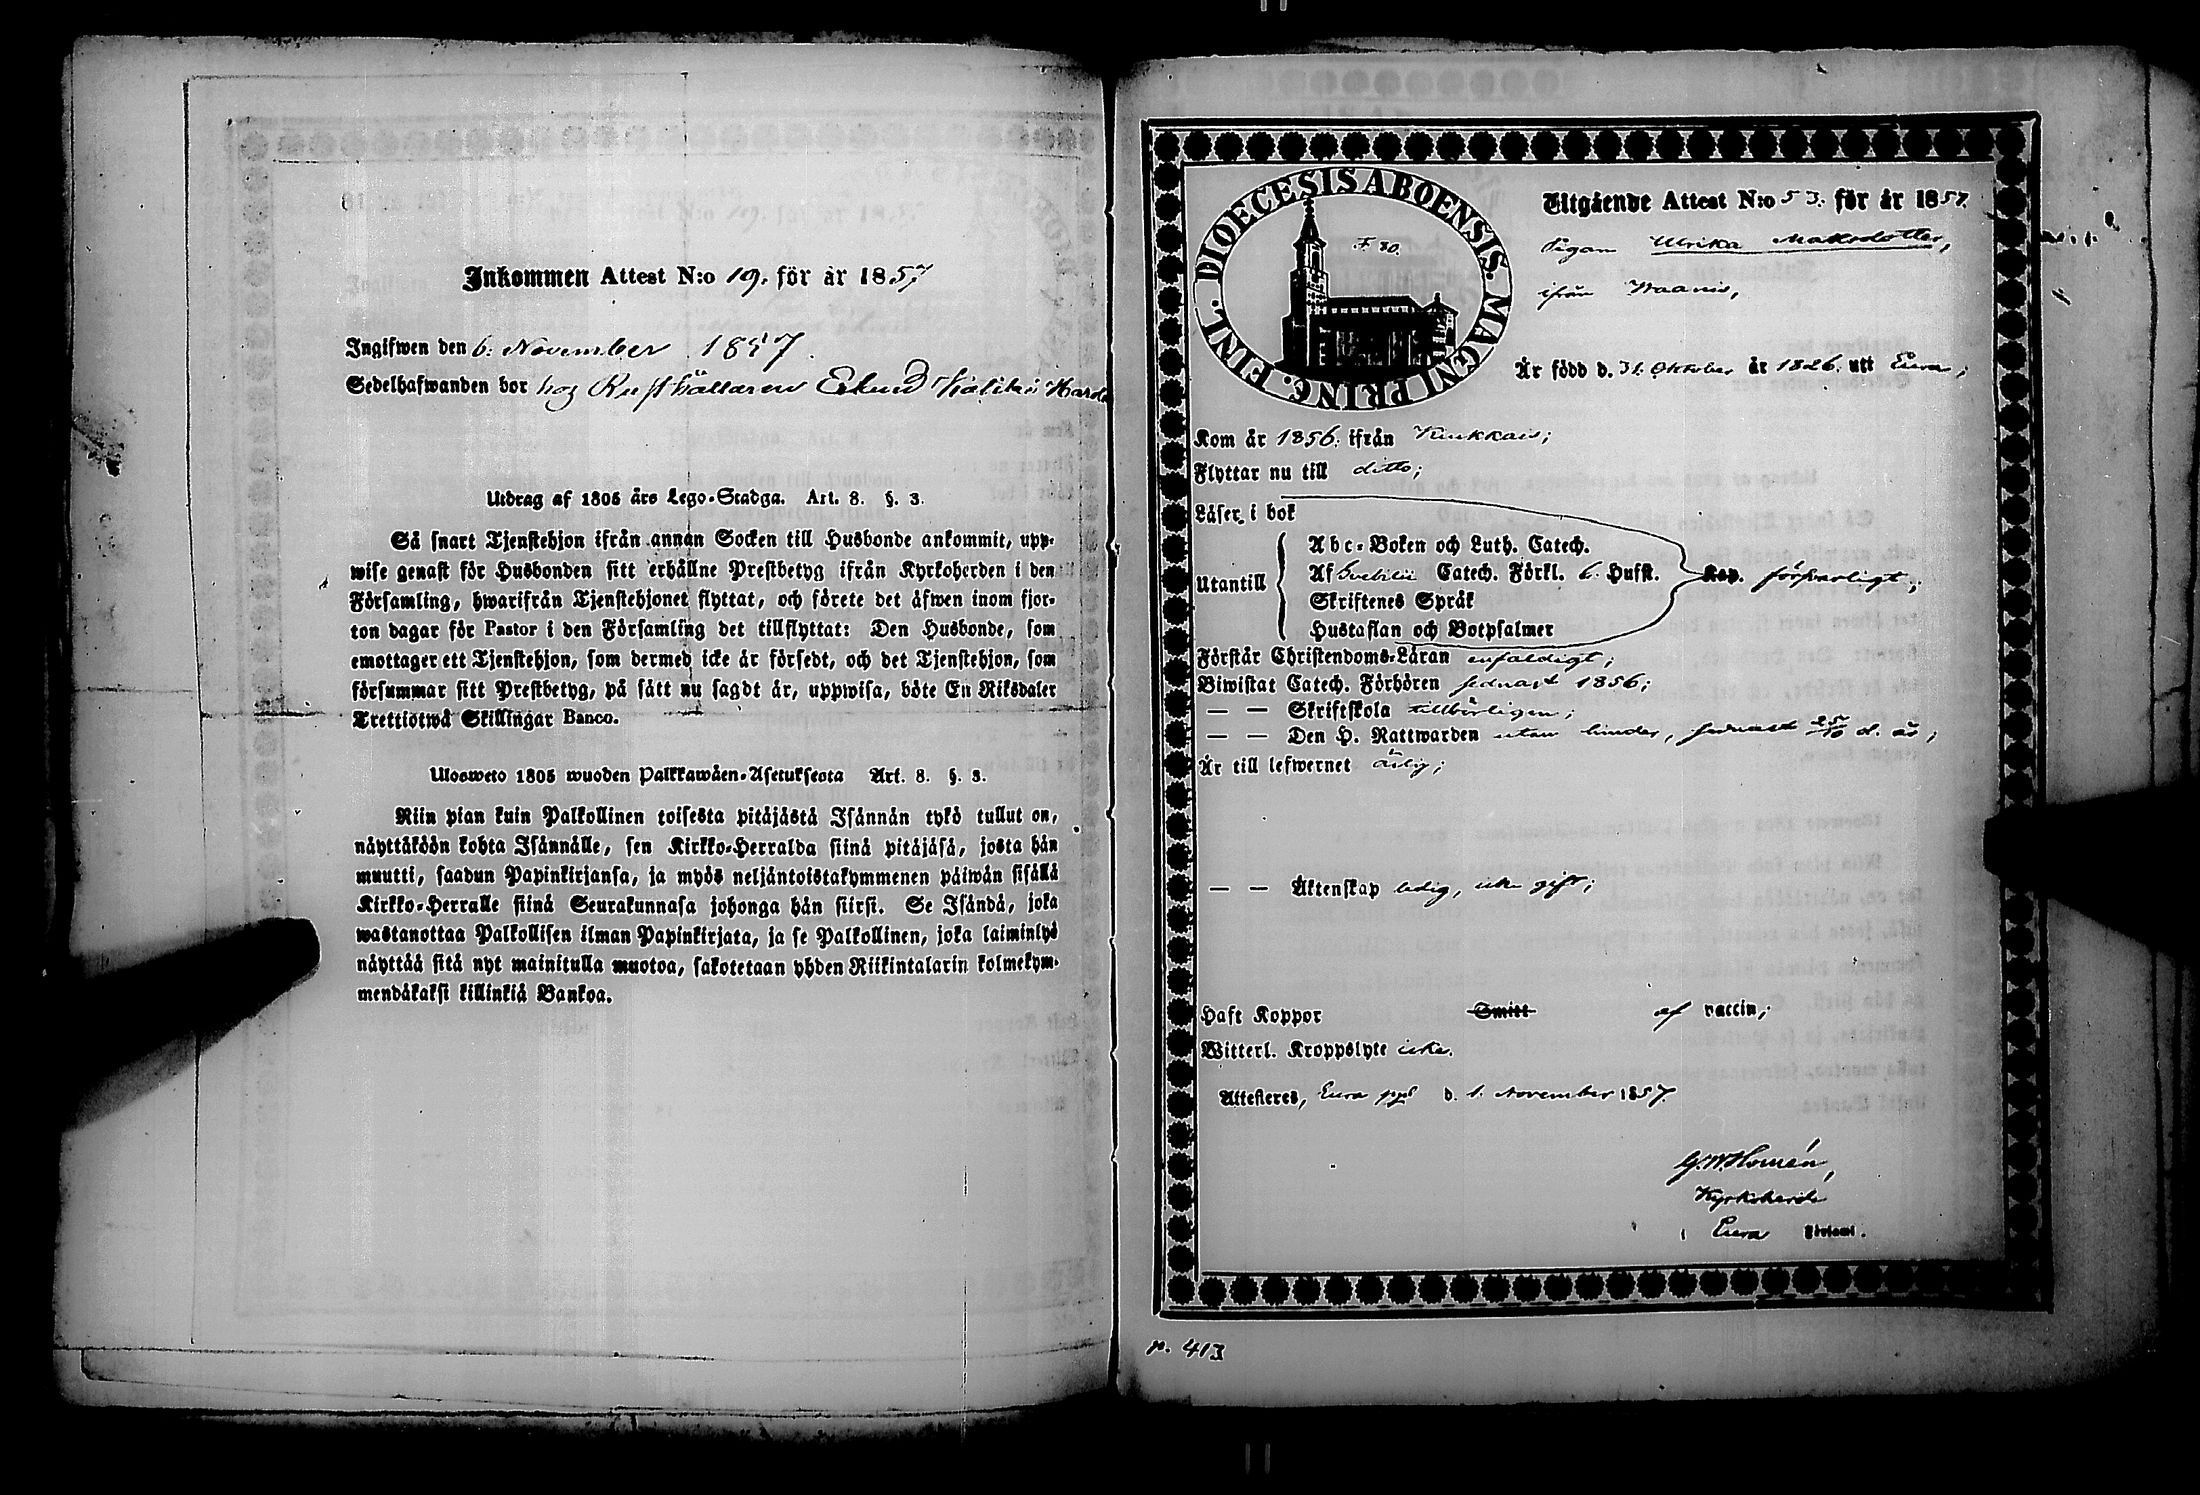 Inkommen Attest N:o 19. för år 1857
Ingifwen den 6. November 1857.
Sedelhafwanden bor hos Rusthållaren Erlund
Utdrag af 1805 års Lego-Stadga. Art. 8. §. 3.
Så snart Tjenstehjon ifrån annan Socken till Husbonde ankommit, upp-
wise genast för Husbonden sitt erhållne Prestbetyg ifrån Kyrkoherden i den
Församling, hwarifrån Tjenstehjonet flyttat, och förete det äfwen inom fjor-
ton dagar för Pastor i den Församling det tillflyttat: Den Husbonde, som
emottager ett Tjenstehjon, som dermed icke är försedt, och det Tjenstehjon, som
försummar sitt Prestbetyg, på sätt nu sagdt är, uppwisa, böte En Riksdaler
Trettiotwå Skillingar Banco.
Ulosweto 1805 wuoden Palkkawäen-Asetuksesta Art. 8. §. 3.
Niin pian kuin Palkollinen toisesta pitäjästä Isännän tykö tullut on,
näyttäköön kohta Isännälle, sen Kirkko-Herralda siinä pitäjäsä, josta hän
muutti, saadun Papinkirjansa, ja myös neljäntoistakymmenen päiwän sisällä
Kirkko-Herralle siinä Seurakunnasa johonga hän siirsi. Se Isändä, joka
wastanottaa Palkollisen ilman Papinkirjata, ja se Palkollinen, joka laiminlyö
näyttää sitä nyt mainitulla muotoa, sakotetaan yhden Riikintalarin kolmekym-
mendäkaksi killinkiä Bankoa.
DIOECESIS ABOENSIS. MAGNI PRINC. FINL.
F 80.
Utgående Attest N:o 53. för år 1857.
Pigan Ulrika Matsdotter,
ifrån Waanis,
Är född d. 31. Oktober år 1826. utt Eura;
Kom år 1856. ifrån Kiukkais;
Flyttar nu till ditto;
Läser i bok
Utantill
Abc-Boken och Luth. Catech.
Af Svebilii Catech. Förkl. 6. Hufst.
Skriftenes Språk
Hustaflan och Botpsalmer
försvarligt;
Förstår Christendoms-Läran enfaldigt;
Biwistat Catech. Förhören sednast 1856;
— — Skriftskola tillbörligen;
— — Den H. Nattwarden utan hinder, sednast 25/10 d. år;
Är till lefwernet ärlig;
— — Äktenskap ledig, icke gift;
Haft Koppor Smitt af vaccin;
Witterl. Kroppslyte icke.
Attesteres, Eura d. 1. November 1857.
G. W. Homén,
Kyrkoherde
i Eura Församl.
p. 413